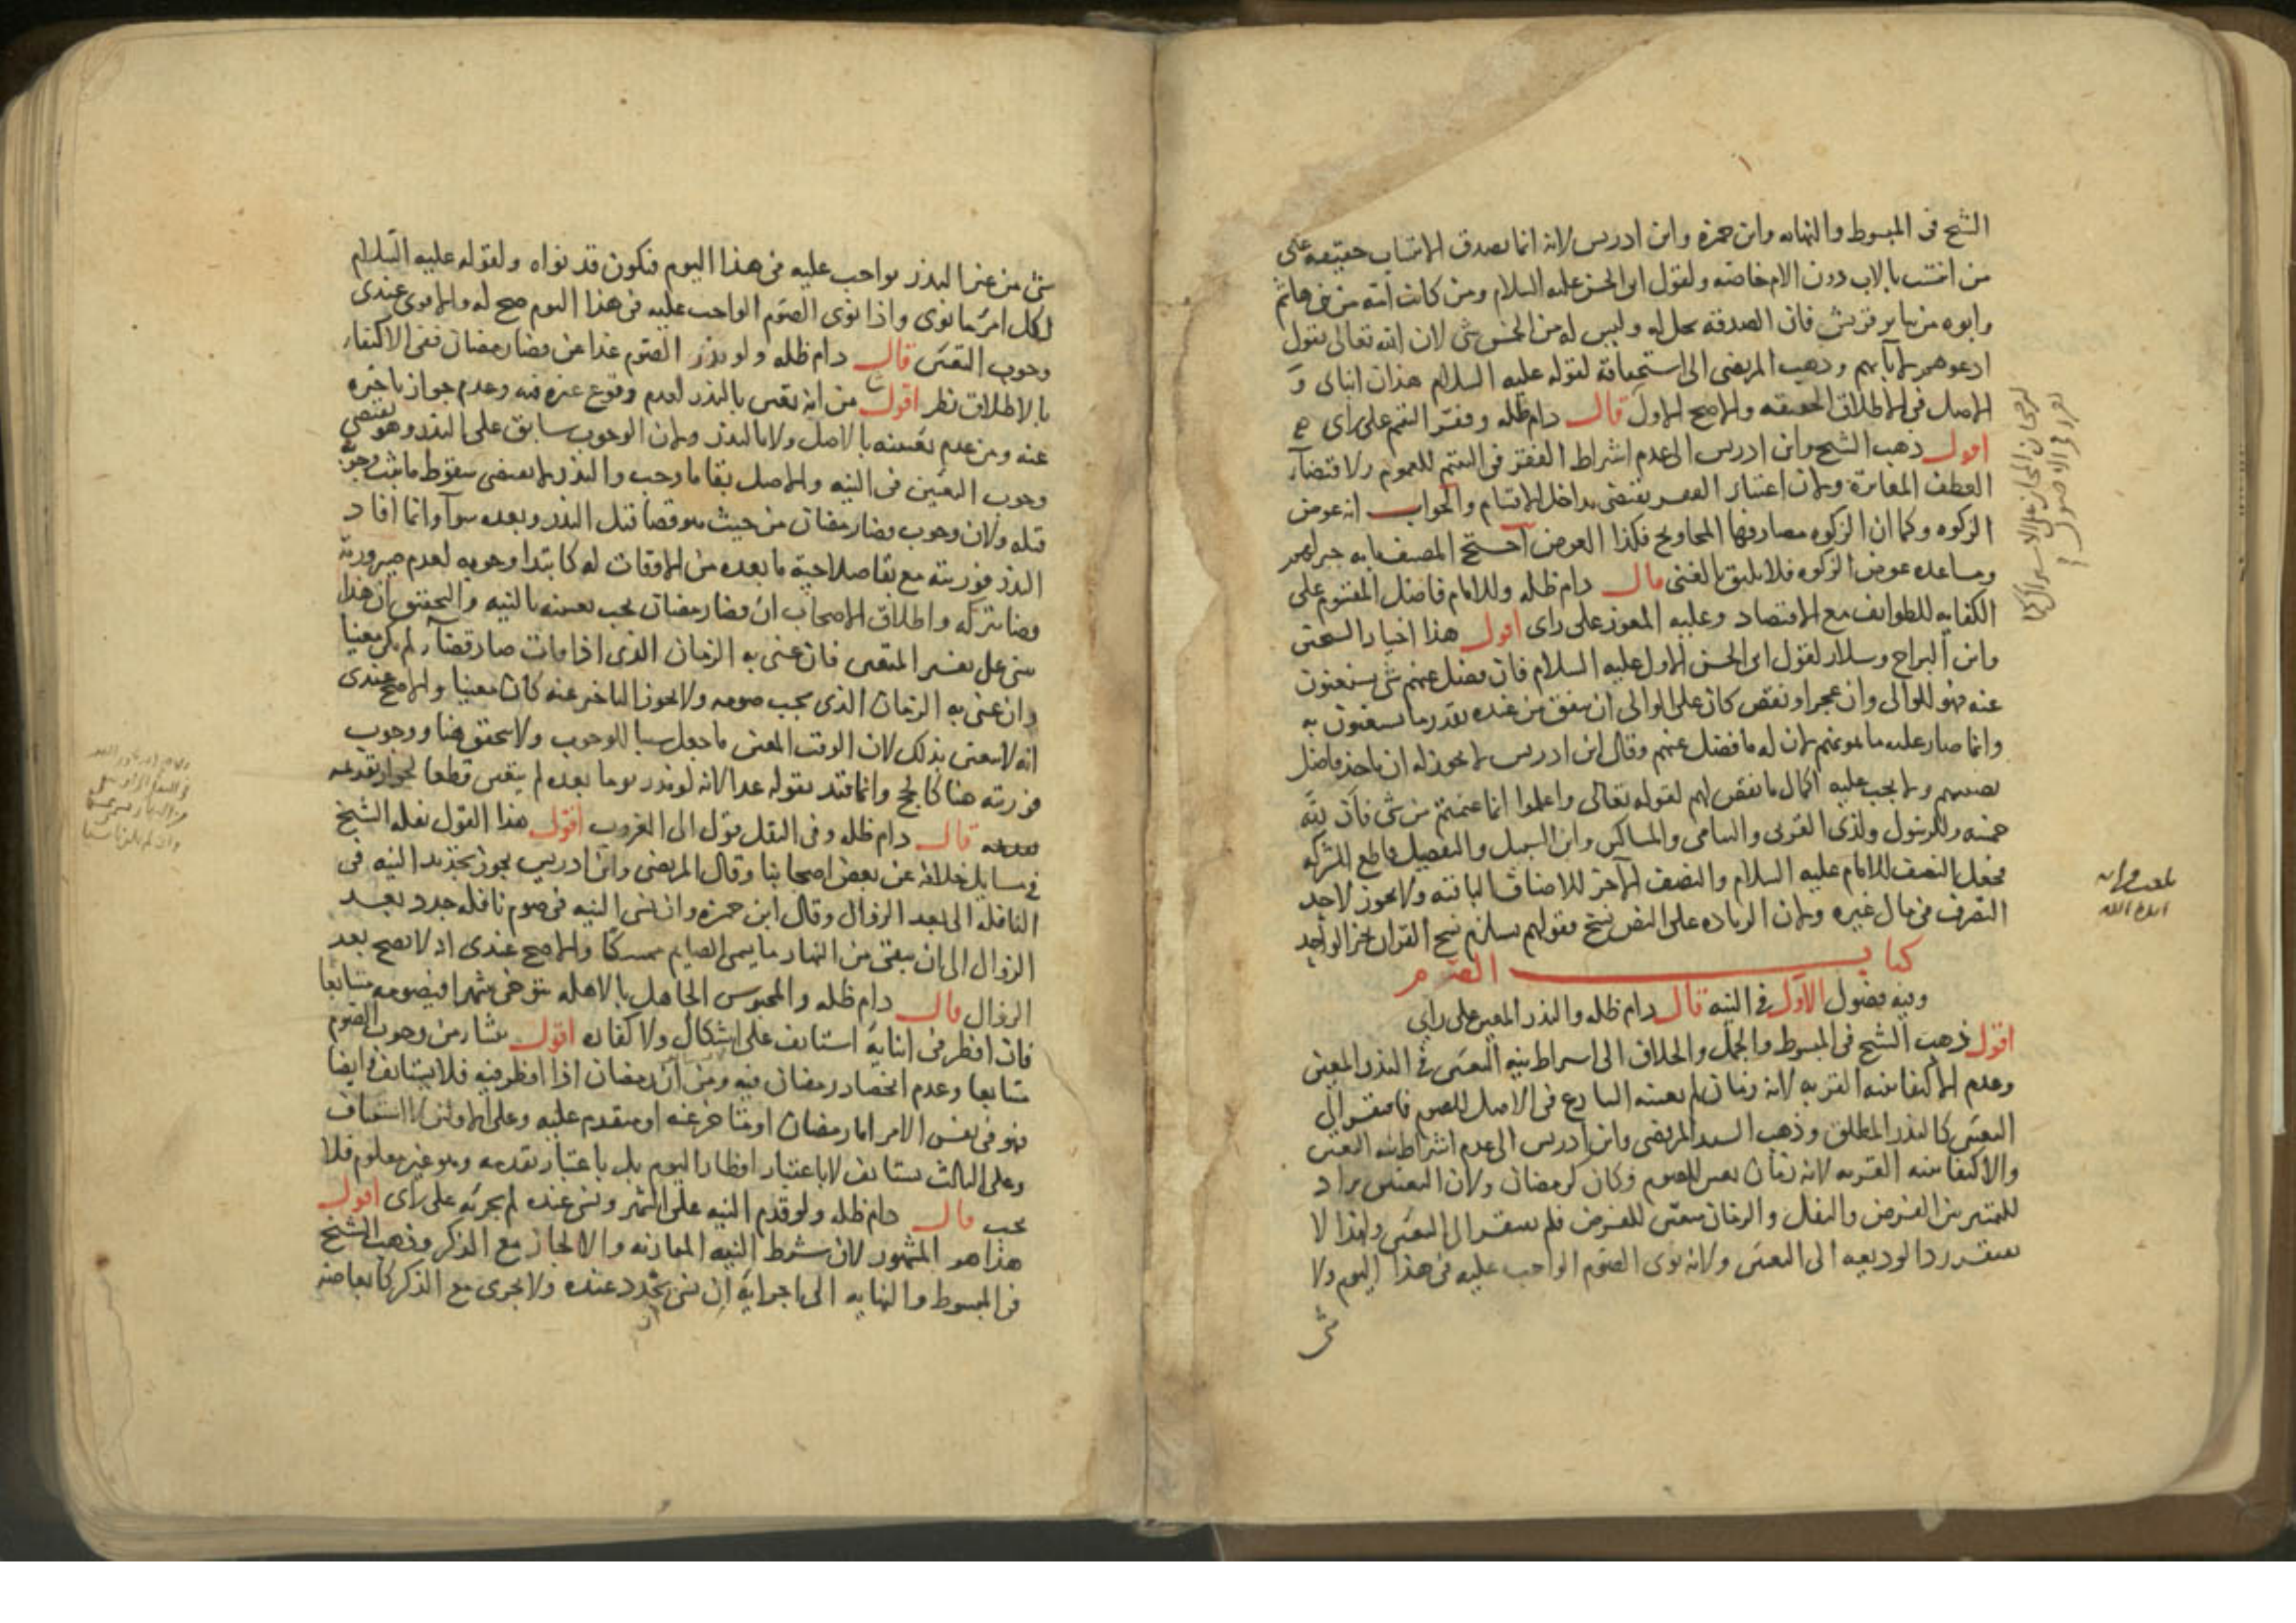 الشيخ فى المبسوط والنهايه وابن حمزة وابن ادريس لانه انما يصدق الانتساب حقيقة على
من انتسب بالاب دون الام خاصة ولقول ابى الحسن عليه السلام ومن كانت امه من بنى هاشم
وابوه من ساير قريش فان الصدقه تحل له وليس له من الخمس شى لان الله تعالى يقول
ادعوهم لابائهم وذهب المرتضى الى استحقاقه لقوله عليه السلام هذان ابناى و
الاصل فى الاطلاق الحقيقه والاصح الاول قال دام ظله وفقر اليتيم على راى
اقول ذهب الشيخ وابن ادريس الى عدم اشتراط الفقر فى اليتيم للعموم ولاقتضاء
العطف المغايرة ولان اعتبار الفقر يقتضى تداخل الاقسام والجواب انه عوض
الزكوه وكما ان الزكوه مصارفها المحاويج فكذا العوض احتج المصنف بانه جبر لهم
ومساعده عوض الزكوه فلا يليق بالغنى قال دام ظله وللامام فاضل المقسوم على
الكفايه للطوايف مع الاقتصاد وعليه المعوز على راى اقول هذا اختيار الشيخين
وابن البراج وسلار لقول ابى الحسن الاول عليه السلام فان فضل عنهم شى يستغنون
عنه فهو للوالى وان عجز او نقص كان على الوالى ان ينفق من عنده بقدر ما يستغنون به
وانما صار عليه ما يمونهم لان له ما فضل عنهم وقال ابن ادريس لا يجوز له ان ياخذ فاضل
نصيبهم ولا يجب عليه اكمال ما نقص لهم لقوله تعالى واعلموا انما غنمتم من شى فان لله
خمسه وللرسول ولذى القربى واليتامى والمساكين وابن السبيل والتفصيل قاطع للشركه
فجعل النصف للامام عليه السلام والنصف الاخر للاصناف الباقية ولا يجوز لاحد
التصرف فى مال غيره ولان الزياده على النص نسخ فقولهم يستلزم نسخ القران بخبر الواحد
كتاب الصوم
وفيه فصول الاول فى النيه قال دام ظله والنذر المعين على راى
اقول ذهب الشيخ فى المبسوط والجمل والخلاف الى اشتراط نيه التعيين فى النذر المعين
وعدم الاكتفا بنيه القربه لانه زمان لم يعينه الشارع فى الاصل للصوم فافتقر الى
التعيين كالنذر المطلق وذهب السيد المرتضى وابن ادريس الى عدم اشتراط نيه التعيين
والاكتفا بنيه القربه لانه زمان تعين للصوم فكان كرمضان ولان التعيين يراد
للتميز بين الفرض والنفل والزمان متعين للفرض فلم يفتقر الى التعيين ولهذا لا
يفتقر رد الوديعه الى التعيين ولانه نوى الصوم الواجب عليه فى هذا اليوم ولا
شى
شى من غير النذر بواجب عليه فى هذا اليوم فيكون قد نواه ولقوله عليه السلام
لكل امرئ ما نوى واذا نوى الصوم الواجب عليه فى هذا اليوم صح له والاقوى عندى
وجوب التعيين قال دام ظله ولو نذر الصوم غدا من قضا رمضان ففى الاكتفاء
بالاطلاق نظر اقول من انه تعين بالنذر لعدم وقوع غيره فيه وعدم جواز تاخيره
عنه ومن عدم تعيينه بالاصل ولا بالنذر ولان الوجوب سابق على النذر وهو يقتضى
وجوب التعيين فى النيه والاصل بقا ما وجب والنذر لا يقتضى سقوط ما ثبت وجوبه
قبله ولان وجوب قضا رمضان من حيث هو قضا قبل النذر وبعده سوآ وانما افاد
النذر فوريته مع بقا صلاحية ما بعده من الاوقات له كابتدا وجوبه لعدم صيرورته
قضا بتركه واطلاق الاصحاب ان قضا رمضان يجب تعيينه بالنيه والتحقيق ان هذا
مبنى على تفسير المتعين فان عنى به الزمان الذى اذا فات صار قضآ لم يكن معينا
وان عنى به الزمان الذى يجب صومه ولا يجوز التاخير عنه كان معينا والاصح عندى
انه لا يتعين بذلك لان الوقت المعين ما جعل سببا للوجوب ولا يتحقق هنا ووجوب
فوريته هنا كالحج وانما قيد بقوله غدا لانه لو نذر يوما بعده لم يتعين قطعا لجواز تقديمه
قال دام ظله وفى النفل قول الى الغروب اقول هذا القول نقله الشيخ
فى مسايل خلافه عن بعض اصحابنا وقال المرتضى وابن ادريس يجوز تجديد النيه فى
النافله الى بعد الزوال وقال ابن حمزه وان نسى النيه فى صوم نافله جدد بعد
الزوال الى ان يبقى من النهار ما يمسى الصايم ممسكا والاصح عندى انه لا يصح بعد
الزوال قال دام ظله والمحبوس الجاهل بالاهله يتوخى شهرا فيصومه متتابعا
فان افطر فى اثنايه استانف على اشكال ولا كفاره اقول ينشا من وجوب الصوم
متتابعا وعدم انحصار رمضان فيه ومن ان رمضان اذا افطر فيه فلا يستانف وايضا
فهو فى نفس الامر اما رمضان او متاخر عنه او متقدم عليه وعلى الاولين لا استيناف
وعلى الثالث يستانف لا باعتبار افطار اليوم بل باعتبار تقدمه وهو غير معلوم فلا
يجب قال دام ظله ولو قدم النيه على الشهر ونسى عنده لم يجزئه على راى اقول
هذا هو المشهور لان شرط النيه المقارنه والا لجاز مع الذكر وذهب الشيخ
فى المبسوط والنهايه الى اجزايه ان نسى تجدد عنده ولا يجزى مع الذكر